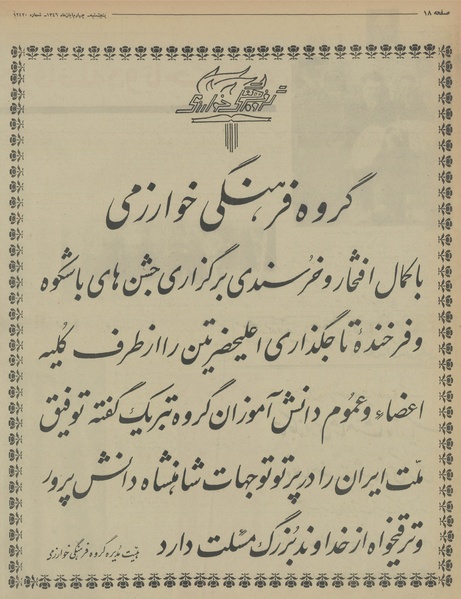 صفحه ۱۸
پنجشنبه چهارم آبان ماه ۱۳۴۶ـ شماره
گروه فرهنگی خوارزمی
گروه فرهنگی خوارزمی
با کمال افتخار و خرسندی برگزاری جشن های باشکوه
و فرخندهٔ تاجگذاری اعلیحضرتین را از طرف کلیه
اعضاء و عموم دانش آموزان گروه تبریک گفته توفیق
ملت ایران را در پرتو توجهات شاهنشاه دانش پرور
و ترقیخواه از خداوند بزرگ مسئلت دارد
هیئت مدیره گروه فرهنگی خوارزمی